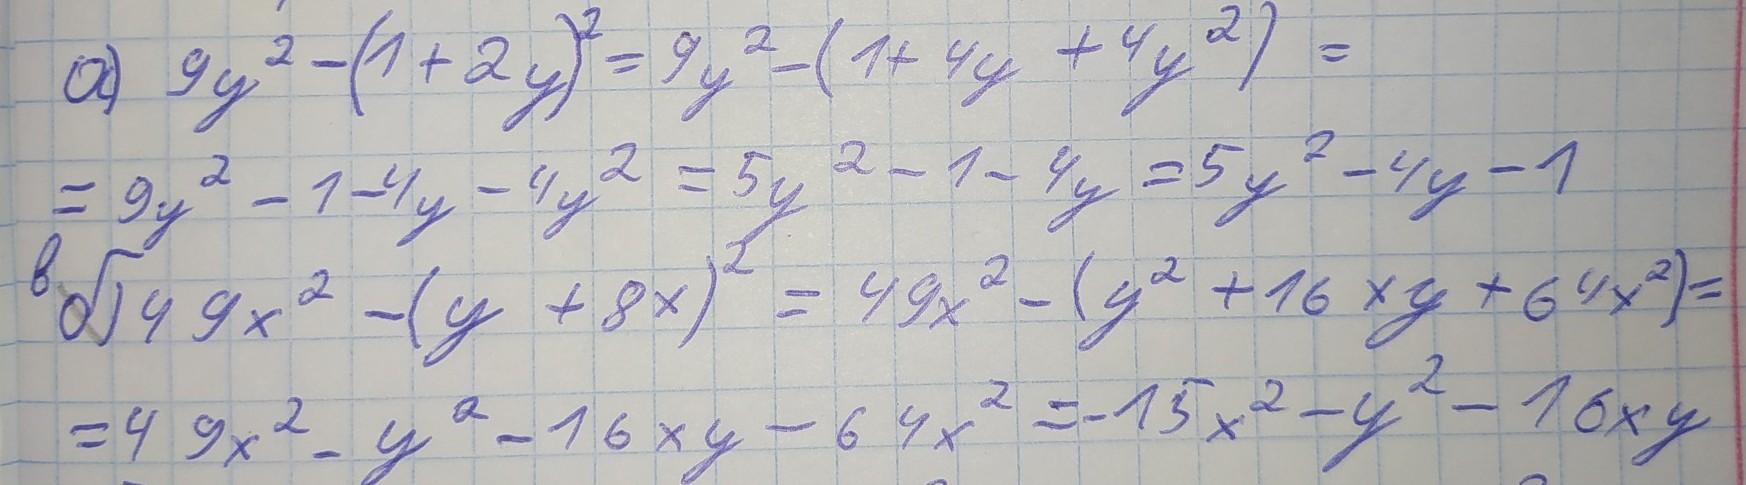 а) 9y² - (1 + 2y)² = 9y² - (1 + 4y + 4y²) =
= 9y² - 1 - 4y - 4y² = 5y² - 1 - 4y = 5y² - 4y - 1
в) 49x² - (y + 8x)² = 49x² - (y² + 16xy + 64x²) =
= 49x² - y² - 16xy - 64x² = -15x² - y² - 16xy